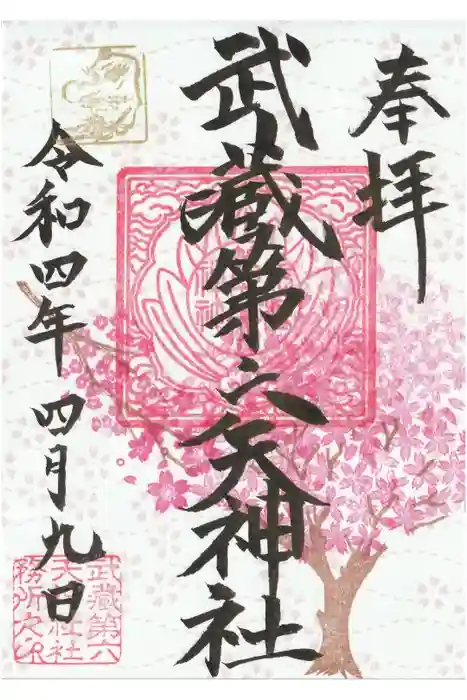 奉拝
武蔵第六天神社
令和四年 四月九日
武蔵第六
天神社社
務所之印